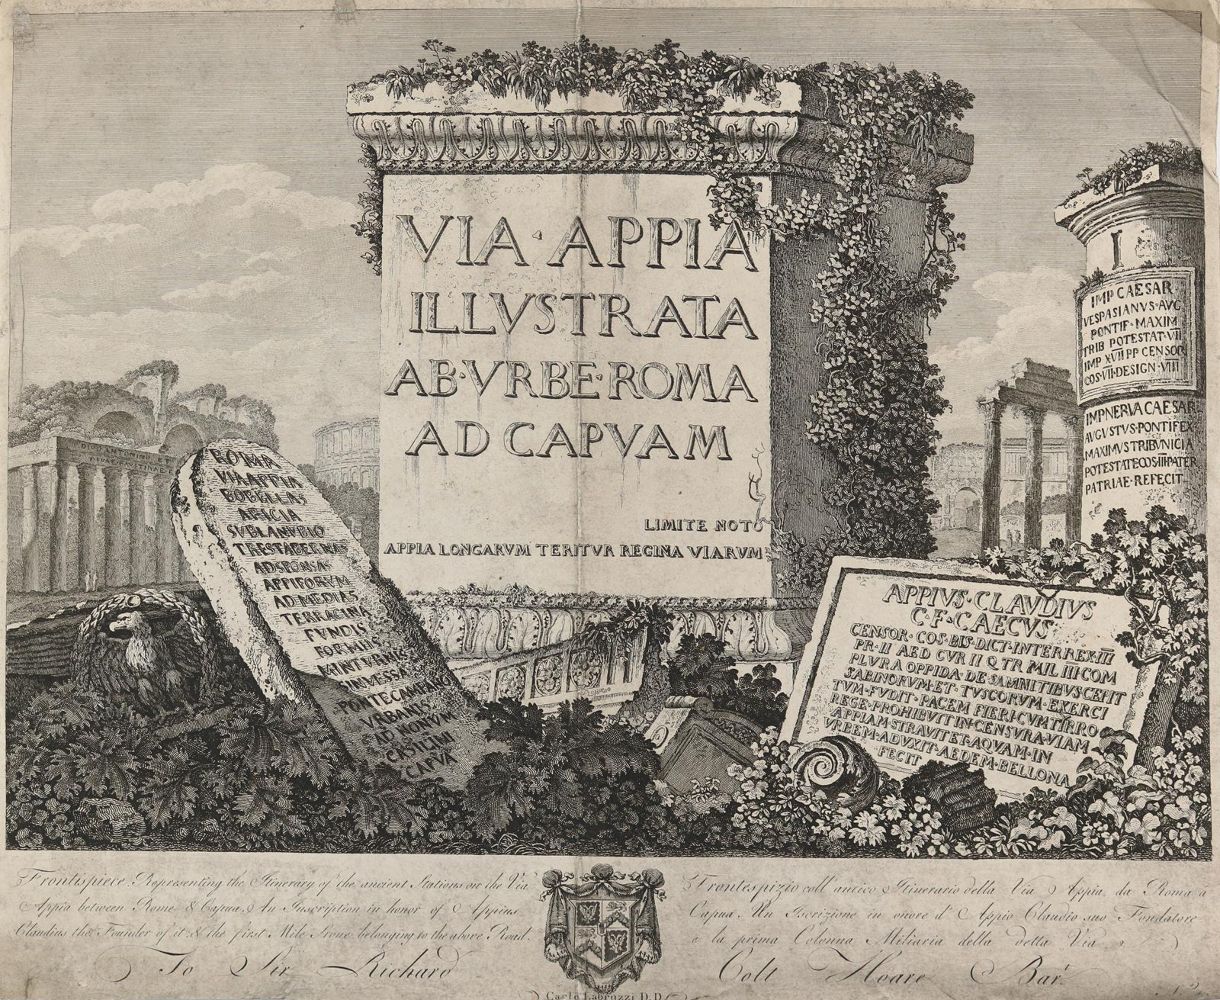 VIA · APPIA
ILLVSTRATA
AB · VRBE · ROMA
AD CAPVAM
LIMITE NOTO
APPIA LONGARVM TERITVR REGINA VIARUM
ROMA
VIA APPIA
BOBELLAS
ARICIA
SVBLANVBIO
TRES TABERNAS
AD SPONSAS
APPIFORVM
AD MEDIAS
TERRACINA
FVNDIS
FORMIIS
MINTVRNIS
SINVESSA
PONTE CAMPANO
VRBANIS
AD NONVM
CASILINI
CAPVA
I
IMP CAESAR
VESPASIANVS · AVG
PONTIF · MAXIM
TRIB POTESTAT · VII
IMP XVII PP CENSOR
COS · VII · DESIGN · VIII
IMP NERVA CAESAR
AVGVSTVS · PONTIFEX
MAXIMVS TRIBVNICIA
POTESTATE COS · III · PATER
PATRIAE · REFECIT
APPIVS · CLAUDIVS
C · F · CAECVS
CENSOR · COS · BIS · DICT · INTERREX · III
PR · II AED CVR II Q TR MIL III COM
PLVRA OPPIDA · DE SAMNITIBVS CEPIT
SABINORVM · ET · TVSCORVM · EXERCI
TVM · FVDIT · PACEM FIERI CVM PYRRO
REGE · PROHIBVIT IN · CENSVRA · VIAM
APPIAM STRAVIT ET · AQVAM · IN
VRBEM · ADVXIT · AEDEM · BELLONA
FECIT
Frontispiece. Representing the Itinerary of the ancient Stations on the Via
Appia between Rome & Capua. An Inscription in honor of Appius
Claudius the Founder of it & the first Mile Stone belonging to the above Road.
Frontespizio coll' antico Itinerario della Via Appia da Roma a
Capua. Un Iscrizione in onore d' Appio Claudio suo Fondatore
e la prima Colonna Miliaria della detta Via
To Sir Richard Colt Hoare Bar.t
Carlo Labruzzi D.D.